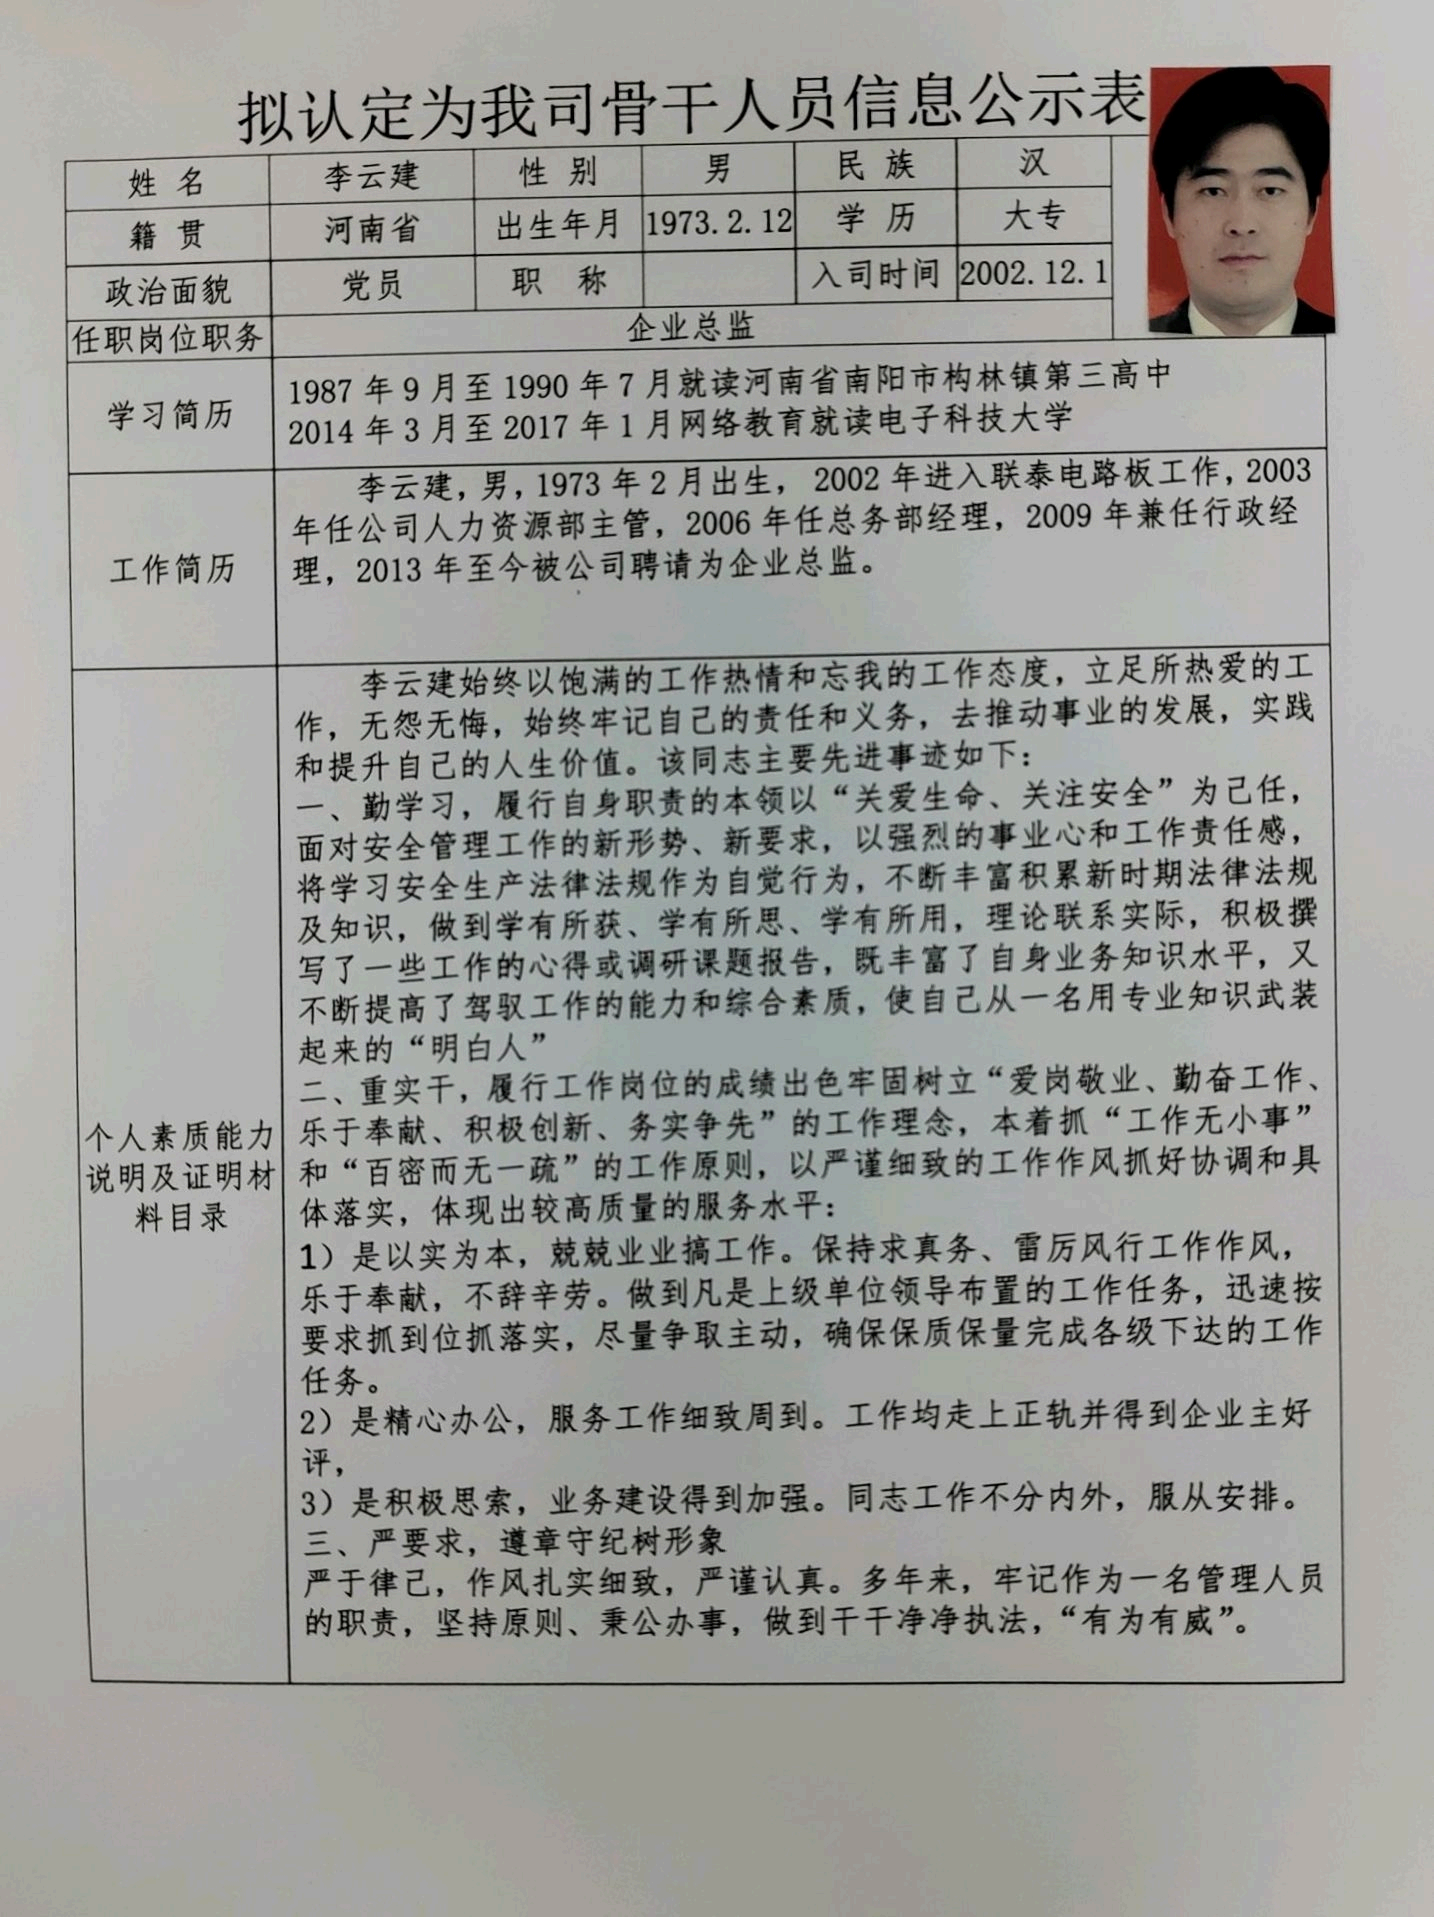 拟认定为我司骨干人员信息公示表
姓 名 李云建 性 别 男 民 族 汉
籍 贯 河南省 出生年月 1973.2.12 学 历 大专
政治面貌 党员 职 称 入司时间 2002.12.1
任职岗位职务 企业总监
学习简历
1987 年 9 月至 1990 年 7 月就读河南省南阳市构林镇第三高中
2014 年 3 月至 2017 年 1 月网络教育就读电子科技大学
工作简历
李云建，男，1973 年 2 月出生， 2002 年进入联泰电路板工作，2003
年任公司人力资源部主管，2006 年任总务部经理，2009 年兼任行政经
理，2013 年至今被公司聘请为企业总监。
个人素质能力
说明及证明材
料目录
李云建始终以饱满的工作热情和忘我的工作态度，立足所热爱的工
作，无怨无悔，始终牢记自己的责任和义务，去推动事业的发展，实践
和提升自己的人生价值。该同志主要先进事迹如下：
一、勤学习，履行自身职责的本领以“关爱生命、关注安全”为己任，
面对安全管理工作的新形势、新要求，以强烈的事业心和工作责任感，
将学习安全生产法律法规作为自觉行为，不断丰富积累新时期法律法规
及知识，做到学有所获、学有所思、学有所用，理论联系实际，积极撰
写了一些工作的心得或调研课题报告，既丰富了自身业务知识水平，又
不断提高了驾驭工作的能力和综合素质，使自己从一名用专业知识武装
起来的“明白人”
二、重实干，履行工作岗位的成绩出色牢固树立“爱岗敬业、勤奋工作、
乐于奉献、积极创新、务实争先”的工作理念，本着抓“工作无小事”
和“百密而无一疏”的工作原则，以严谨细致的工作作风抓好协调和具
体落实，体现出较高质量的服务水平：
1）是以实为本，兢兢业业搞工作。保持求真务、雷厉风行工作作风，
乐于奉献，不辞辛劳。做到凡是上级单位领导布置的工作任务，迅速按
要求抓到位抓落实，尽量争取主动，确保保质保量完成各级下达的工作
任务。
2）是精心办公，服务工作细致周到。工作均走上正轨并得到企业主好
评，
3）是积极思索，业务建设得到加强。同志工作不分内外，服从安排。
三、严要求，遵章守纪树形象
严于律己，作风扎实细致，严谨认真。多年来，牢记作为一名管理人员
的职责，坚持原则、秉公办事，做到干干净净执法，“有为有威”。